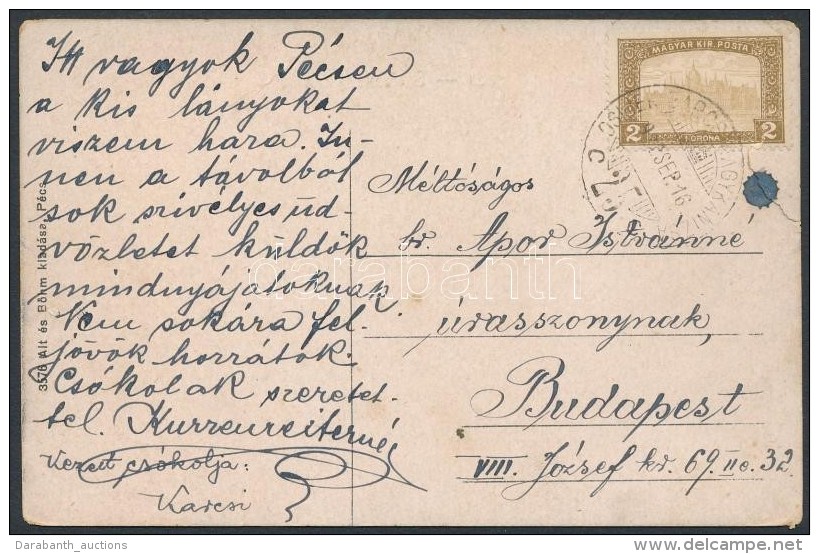 Itt vagyok Pécsen
a kis lányokat
viszem haza. In-
nen a távolból
sok szívélyes üd-
vözletet küldök
mindnyájatoknak.
Nem sokára fel-
jövök hozzátok.
Csókolak szeretet-
tel. Kurzenreiterné
Kezeit csókolja:
Karcsi
3576 Alt és Böhm kiadása, Pécs
MAGYAR KIR. POSTA
2 KORONA 2
SEP. 16
Méltóságos
br. Apor Istvánné
úrasszonynak,
Budapest
VIII. József kr. 69. II e. 32.
darabanth
Darabanth_auctions
delcampe.net